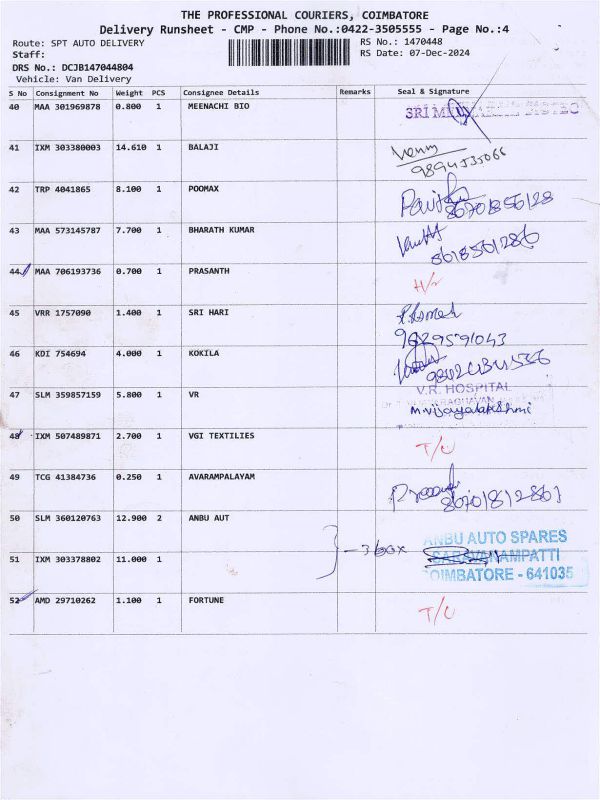 THE PROFESSIONAL COURIERS, COIMBATORE
Delivery Runsheet - CMP - Phone No.:0422-3505555 - Page No.:4
Route: SPT AUTO DELIVERY
Staff:
DRS No.: DCJB147044804
Vehicle: Van Delivery
RS No.: 1470448
RS Date: 07-Dec-2024
S No Consignment No Weight PCS Consignee Details Remarks Seal & Signature
40 MAA 301969878 0.800 1 MEENACHI BIO
41 IXM 303380003 14.610 1 BALAJI
42 TRP 4041865 8.100 1 POOMAX
43 MAA 573145787 7.700 1 BHARATH KUMAR
44 MAA 706193736 0.700 1 PRASANTH
45 VRR 1757090 1.400 1 SRI HARI
46 KDI 754694 4.000 1 KOKILA
47 SLM 359857159 5.800 1 VR V.R. HOSPITAL
48 IXM 507489871 2.700 1 VGI TEXTILIES T/C
49 TCG 41384736 0.250 1 AVARAMPALAYAM
50 SLM 360120763 12.900 2 ANBU AUT
51 IXM 303378802 11.000 1
3 box
ANBU AUTO SPARES
SARAVANAMPATTI
COIMBATORE - 641035
52 AMD 29710262 1.100 1 FORTUNE T/C